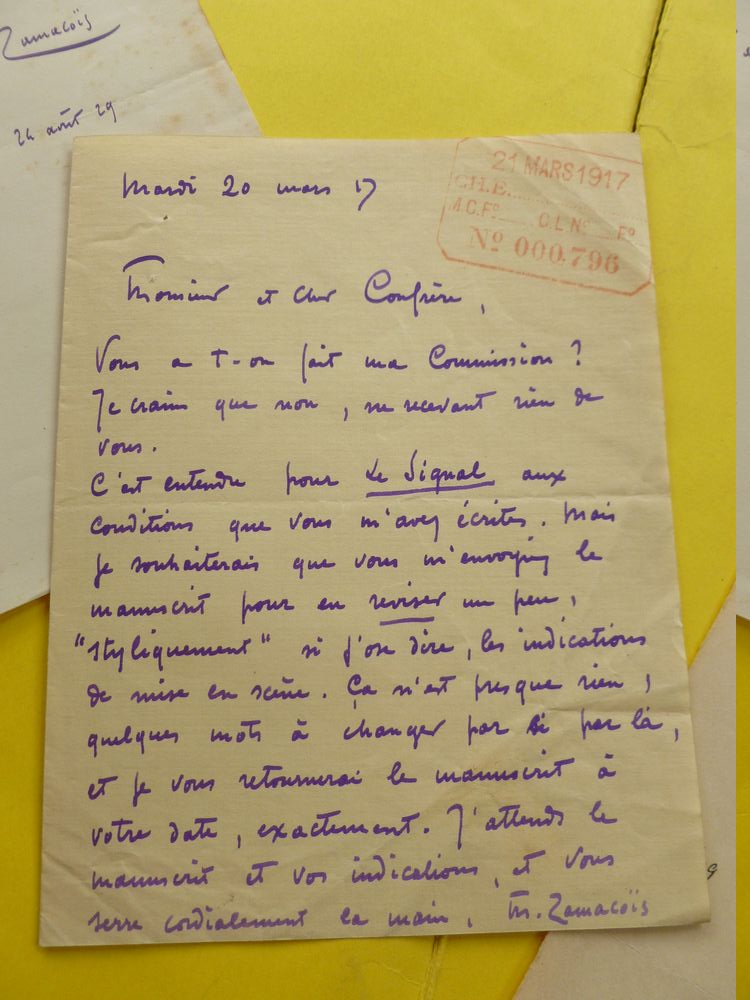 Zamacoïs
24 août 29
21 MARS 1917
CH.E.
A C.Fº C L Nº Fº
Nº 000.796
Mardi 20 mars 17
Monsieur et cher Confrère,
Vous a t-on fait ma Commission ?
Je crains que non, ne recevant rien de
vous.
C'est entendu pour Le Signal aux
conditions que vous m'avez écrites. Mais
je souhaiterais que vous m'envoyiez le
manuscrit pour en reviser un peu,
"styliquement" si j'ose dire, les indications
de mise en scène. Ça n'est presque rien,
quelques mots à changer par ci par là,
et je vous retournerai le manuscrit à
votre date, exactement. J'attends le
manuscrit et vos indications, et vous
serre cordialement la main. M. Zamacoïs